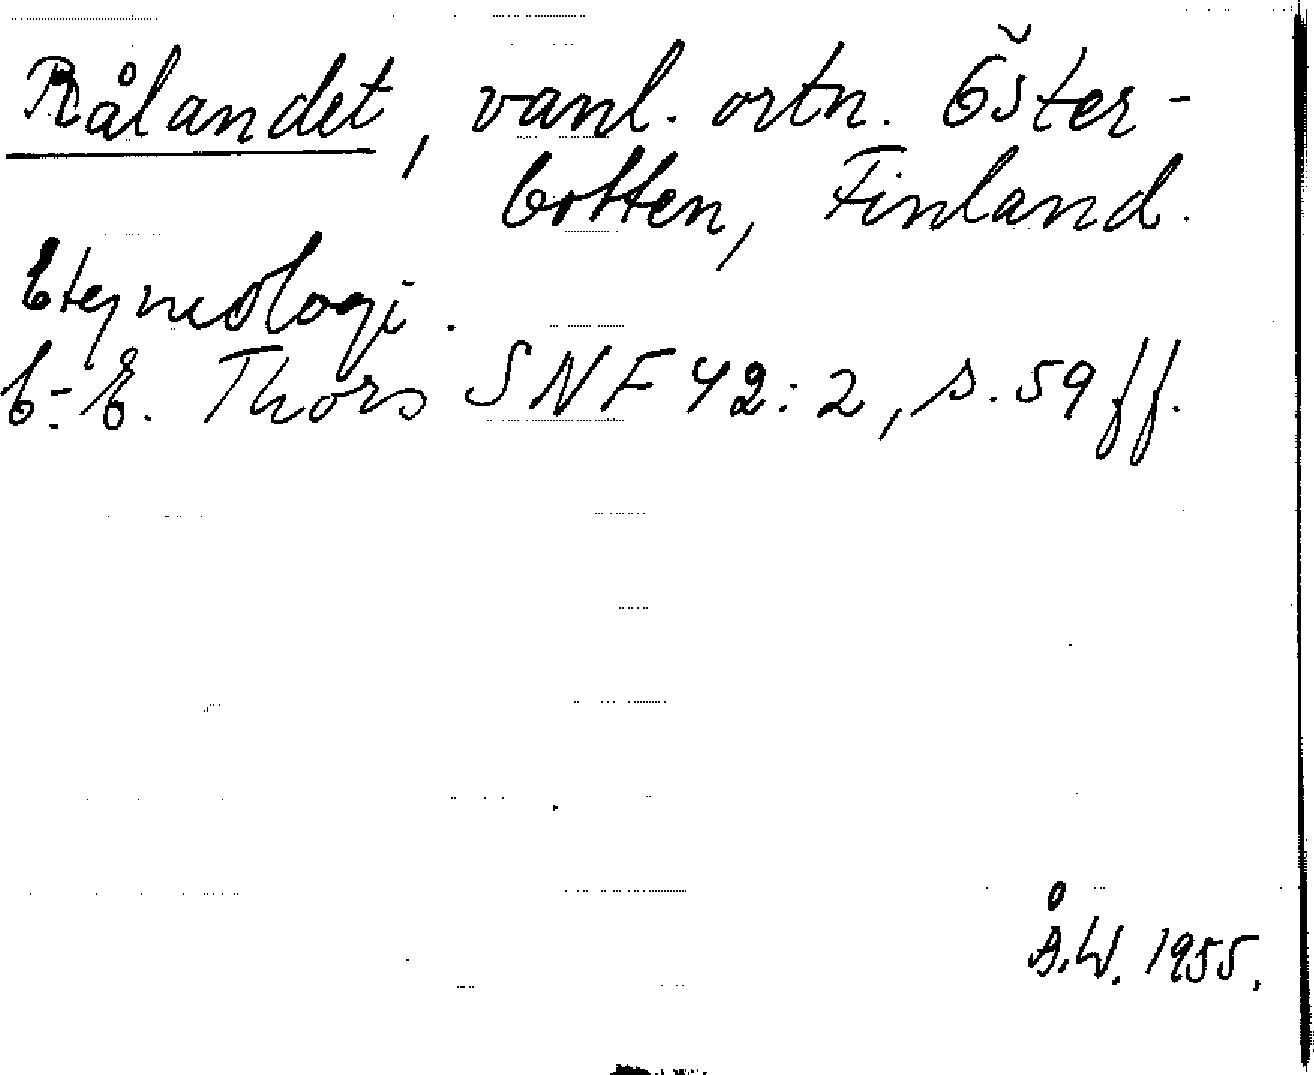 Rålandet, vanl. ortn. Öster-
botten, Finland.
Etymologi.
C.-E. Thors SNF 42:2, s. 59 ff.
Å.W. 1955.